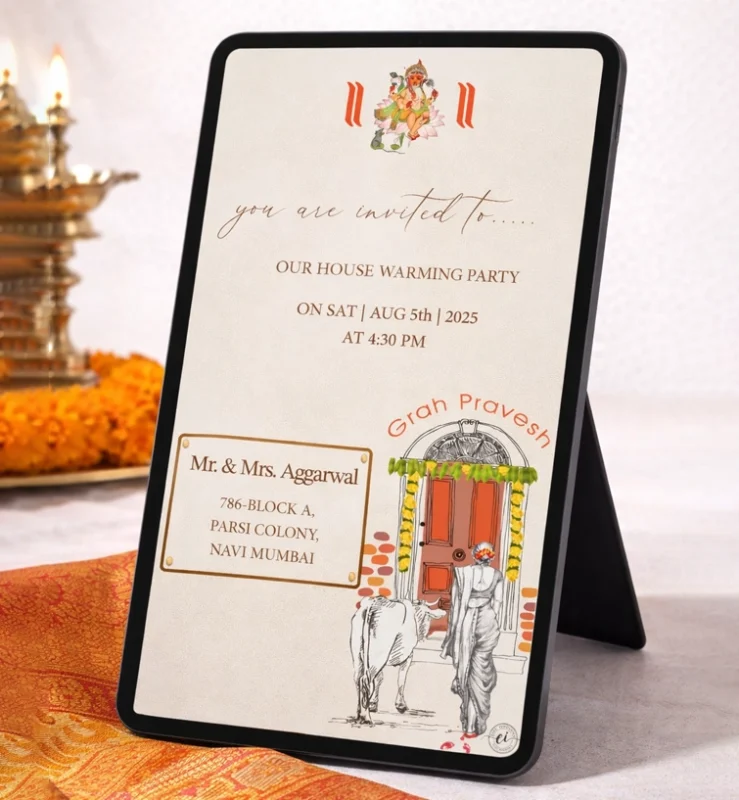 you are invited to.....
OUR HOUSE WARMING PARTY
ON SAT | AUG 5th | 2025
AT 4:30 PM
Grah Pravesh
Mr. & Mrs. Aggarwal
786-BLOCK A,
PARSI COLONY,
NAVI MUMBAI
ei